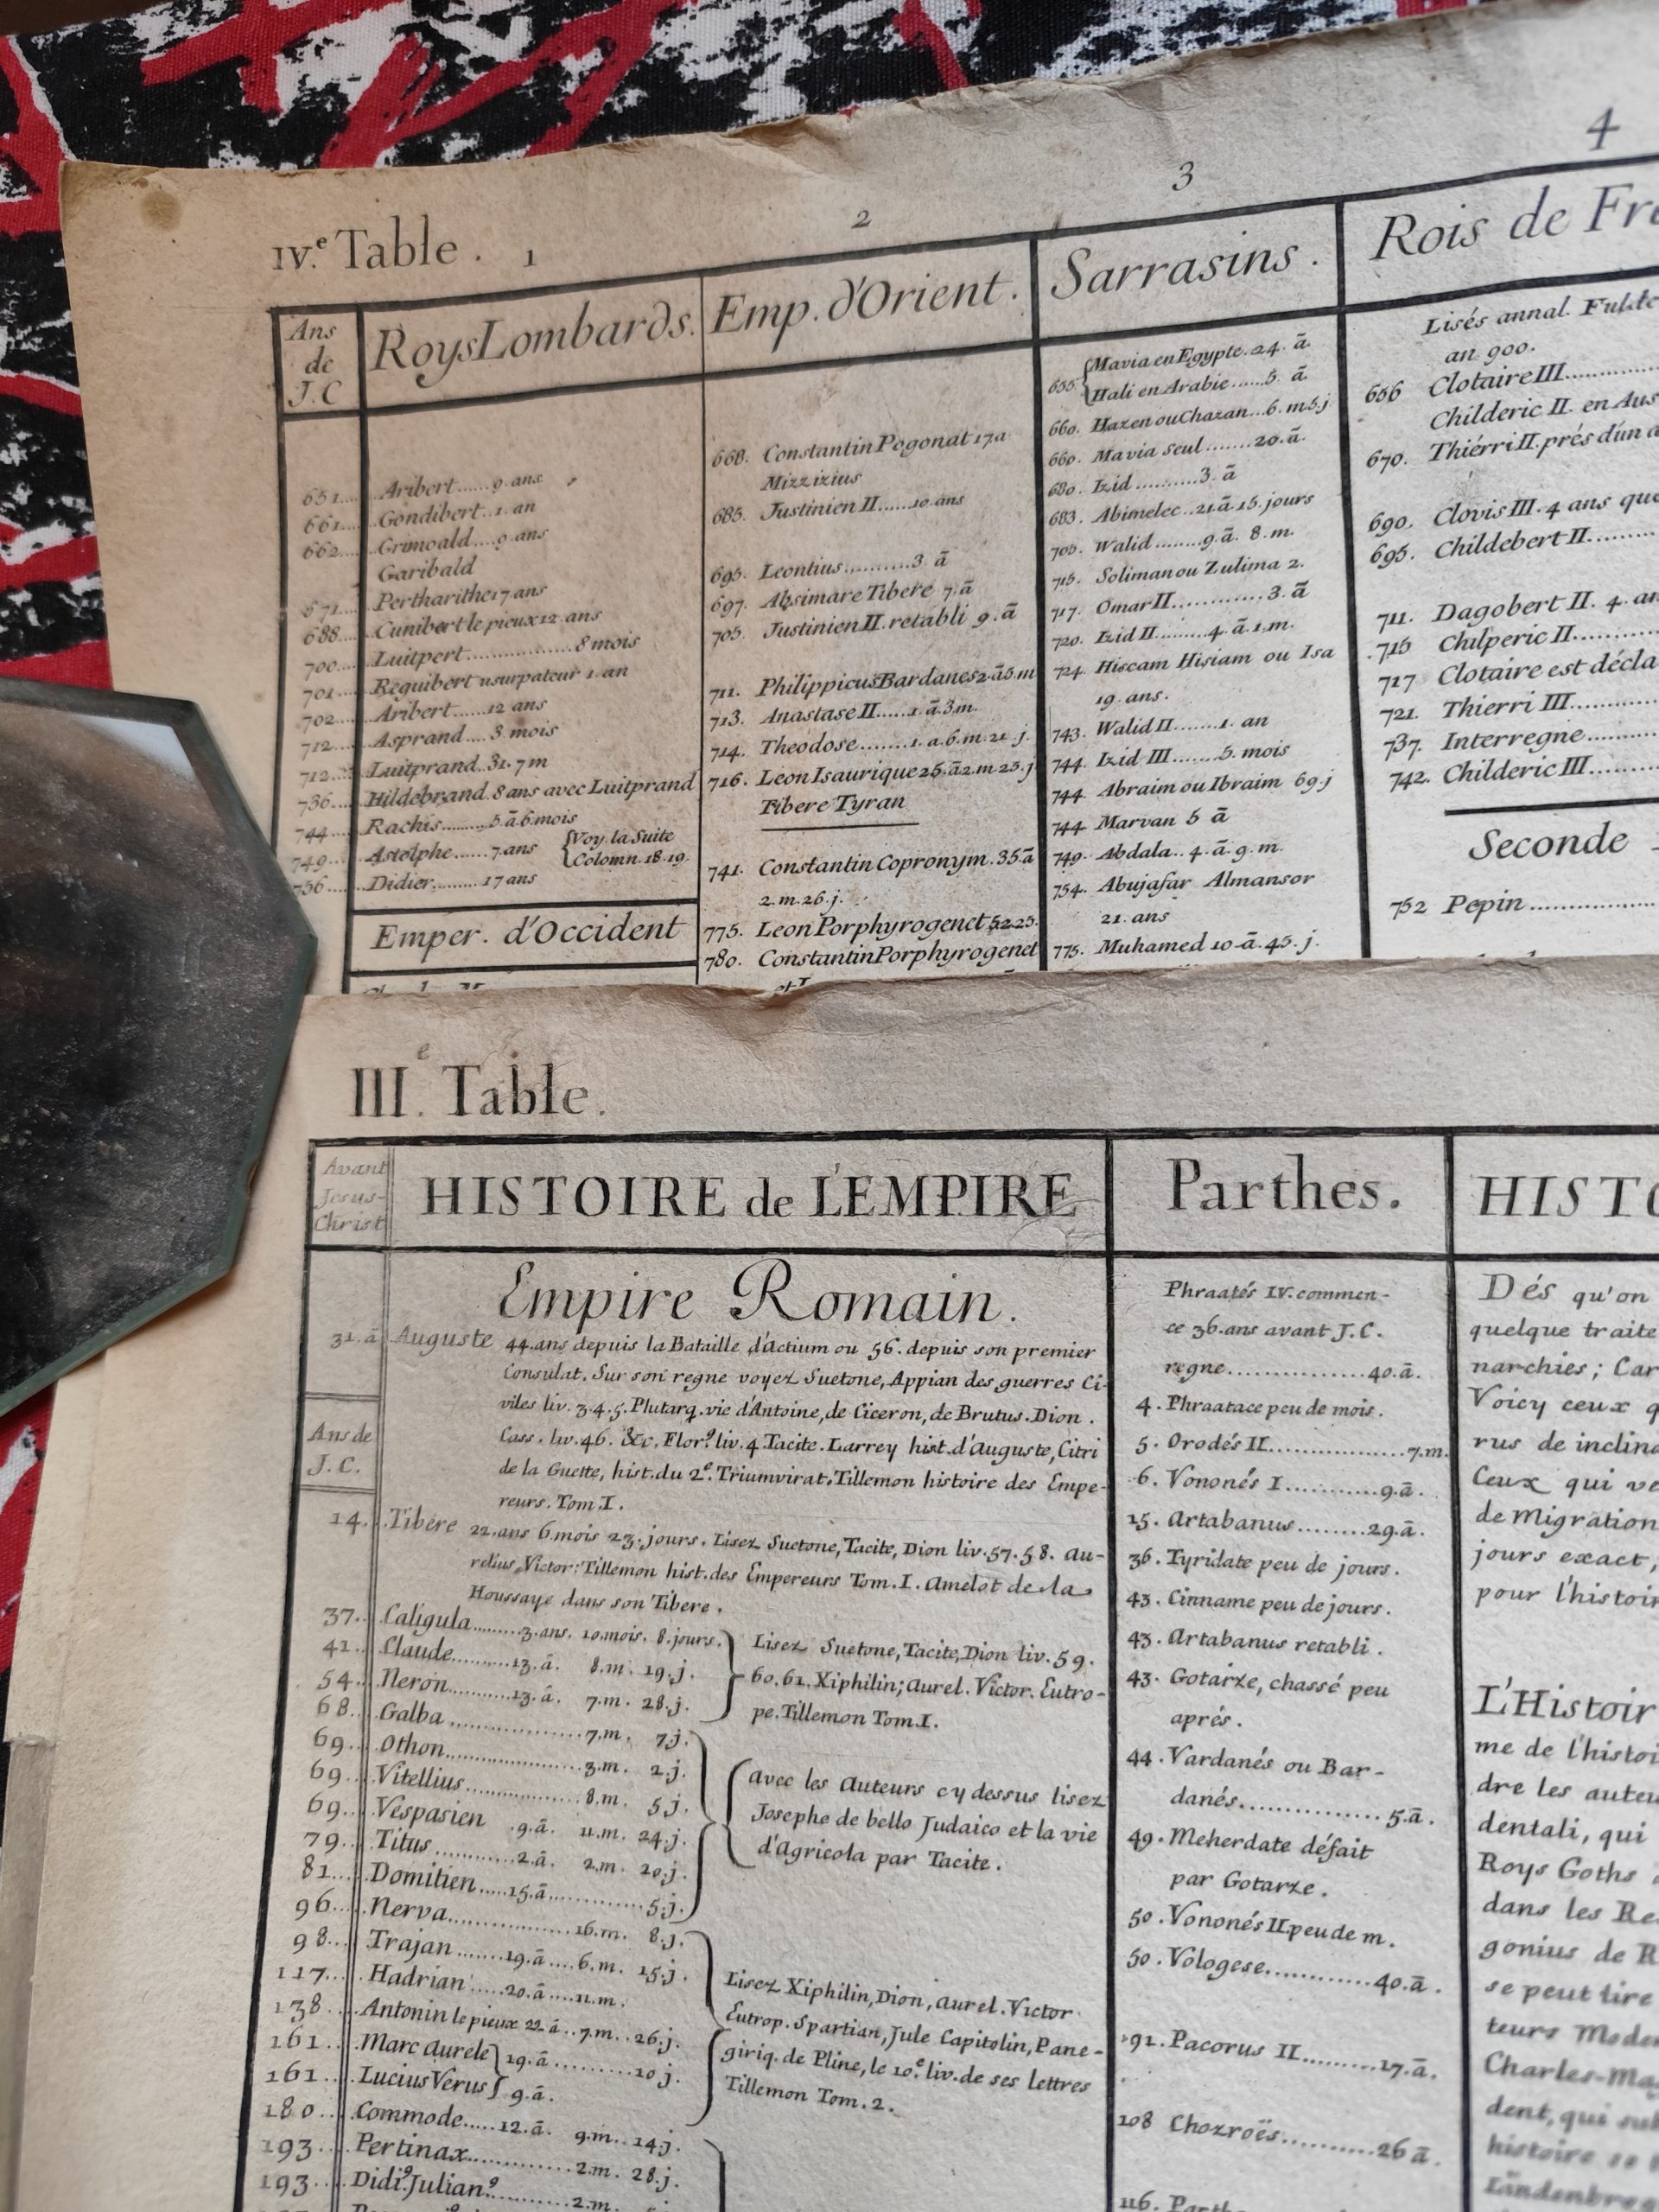 IV.e Table. 1
2
3
4
Ans
de
J.C
Roys Lombards.
651.... Aribert......9 ans
661.... Gondibert..1. an
662.... Grimoald....9. ans
Garibald
671.... Pertharithe 17 ans
688.... Cunibert le pieux 12. ans
700.... Luitpert..................8 mois
701.... Reguibert usurpateur 1. an
702.... Aribert......12 ans
712.... Asprand....3. mois
712... Luitprand..31. 7 m
736.... Hildebrand. 8 ans avec Luitprand
744.... Rachis........5 ā 6 mois
749.... Astolphe......7 ans {Voy. la Suite
{Colomn. 18. 19.
756..... Didier.........17 ans
Emper. d'Occident
Emp. d'Orient.
668. Constantin Pogonat 17 a
Mizzizius
685. Justinien II......10 ans
695. Leontius...........3. ā
697. Absimare Tibere 7. ā
705. Justinien II. retabli 9. ā
711. Philippicus Bardanes 2 ā 5 m
713. Anastase II.....1. ā 3. m.
714. Theodose........1. a. 6. m. 21. j.
716. Leon Isaurique 25. ā 2. m. 25. j
Tibere Tyran
741. Constantin Copronym. 35. ā
2. m. 26. j.
775. Leon Porphyrogenet
780. Constantin Porphyrogenet
Sarrasins.
655. {Mavia en Egypte. 24. ā.
{Hali en Arabie......5. ā.
660. Hazen ou Chazan...6. m. 5. j
660. Mavia seul........20. ā.
680. Izid ...........3. ā
683. Abimelec..21 ā. 15. jours
705. Walid ........9. ā. 8. m.
715. Soliman ou Zulima 2.
717. Omar II.............3. ā
720. Izid II.........4. ā. 1. m.
724. Hiscam Hisiam ou Isa
19. ans.
743. Walid II........1. an
744. Izid III........5. mois
744. Abraim ou Ibraim 69. j
744. Marvan 5 ā
749. Abdala.. 4. ā. 9. m.
754. Abujafar Almansor
21. ans
775. Muhamed 10 ā. 45. j.
Rois de Fr
Lisés annal. Fulde
an 900.
656 Clotaire III..............
Childeric II. en Aus
670. Thiérri II. prés d'un a
690. Clovis III. 4 ans que
695. Childebert II..........
711. Dagobert II. 4. an
715 Chilperic II............
717 Clotaire est décla
721. Thierri III.............
737. Interregne..........
742. Childeric III...........
Seconde
752 Pepin ..................
III.e Table.
Avant
Jesus-
Christ
HISTOIRE de L'EMPIRE
Empire Romain.
31. ā Auguste 44. ans depuis la Bataille d'Actium ou 56. depuis son premier
Consulat. Sur son regne voyez Suetone, Appian des guerres Ci-
viles liv. 3. 4. 5. Plutarq. vie d'Antoine, de Ciceron, de Brutus. Dion.
Cass. liv. 46. &c. Flor.9 liv. 4. Tacite. Larrey hist. d'Auguste, Citri
de la Guette, hist. du 2.e Triumvirat. Tillemon histoire des Empe-
reurs. Tom. I.
Ans de
J. C.
14. Tibere 22. ans 6. mois 23. jours. Lisez Suetone, Tacite, Dion liv. 57. 58. au-
relius Victor. Tillemon hist. des Empereurs Tom. I. Amelot de la
Houssaye dans son Tibere.
37.. Caligula.........3. ans. 10. mois. 8. jours.
41... Claude..........13. ā. 8. m. 19. j.
54... Neron...........13. ā. 7. m. 28. j.
68.. Galba ..................7. m. 7. j
Lisez Suetone, Tacite, Dion liv. 59.
60. 61. Xiphilin; aurel. Victor. Eutro-
pe. Tillemon Tom. I.
69... Othon..................3. m. 2. j.
69... Vitellius...............8. m. 5. j.
69... Vespasien .9. ā. 11. m. 24. j.
79... Titus............2. ā. 2. m. 20. j.
81.... Domitien.....15. ā............5. j.
avec les Auteurs cy dessus lisez
Josephe de bello Judaico et la vie
d'Agricola par Tacite.
96.... Nerva..................16. m. 8. j.
98... Trajan .......19. ā.....6. m. 15. j.
117.... Hadrian ......20. ā.....11. m.
138.... Antonin le pieux 22. ā..7. m. .26. j.
161.... Marc aurele} 19. ā..........10 j.
161.... Lucius Verus} 9. ā.
180.... Commode.....12. ā. 9. m. .14. j.
Lisez Xiphilin, Dion, aurel. Victor
Eutrop. Spartian, Jule Capitolin, Pane-
giriq. de Pline, le 10.e liv. de ses lettres
Tillemon Tom. 2.
193.... Pertinax...............2. m. 28. j.
193.... Didi9. Julian9...........2. m.
Parthes.
Phraatés IV. commen-
ce 36. ans avant J. C.
regne................40. ā.
4. Phraatace peu de mois.
5. Orodés II..................7. m.
6. Vononés I............9. ā.
15. artabanus.........29. ā.
36. Tyridate peu de jours.
43. Cinname peu de jours.
43. artabanus retabli.
43. Gotarze, chassé peu
aprés.
44. Vardanés ou Bar-
danés................5. ā.
49. Meherdate défait
par Gotarze.
50. Vononés II. peu de m.
50. Vologese............40. ā.
91. Pacorus II..........17. ā.
108 Chozroës...........26 ā.
116.
HISTO
Dés qu'on
quelque traite
narchies; Car
Voicy ceux q
rus de inclina
Ceux qui ve
de Migration
jours exact,
pour l'histoir
L'Histoir
me de l'histoi
dre les auteu
dentali, qui
Roys Goths
dans les Re
gonius de R
se peut tire
teurs Moder
Charles-Mag
dent, qui sub
histoire se